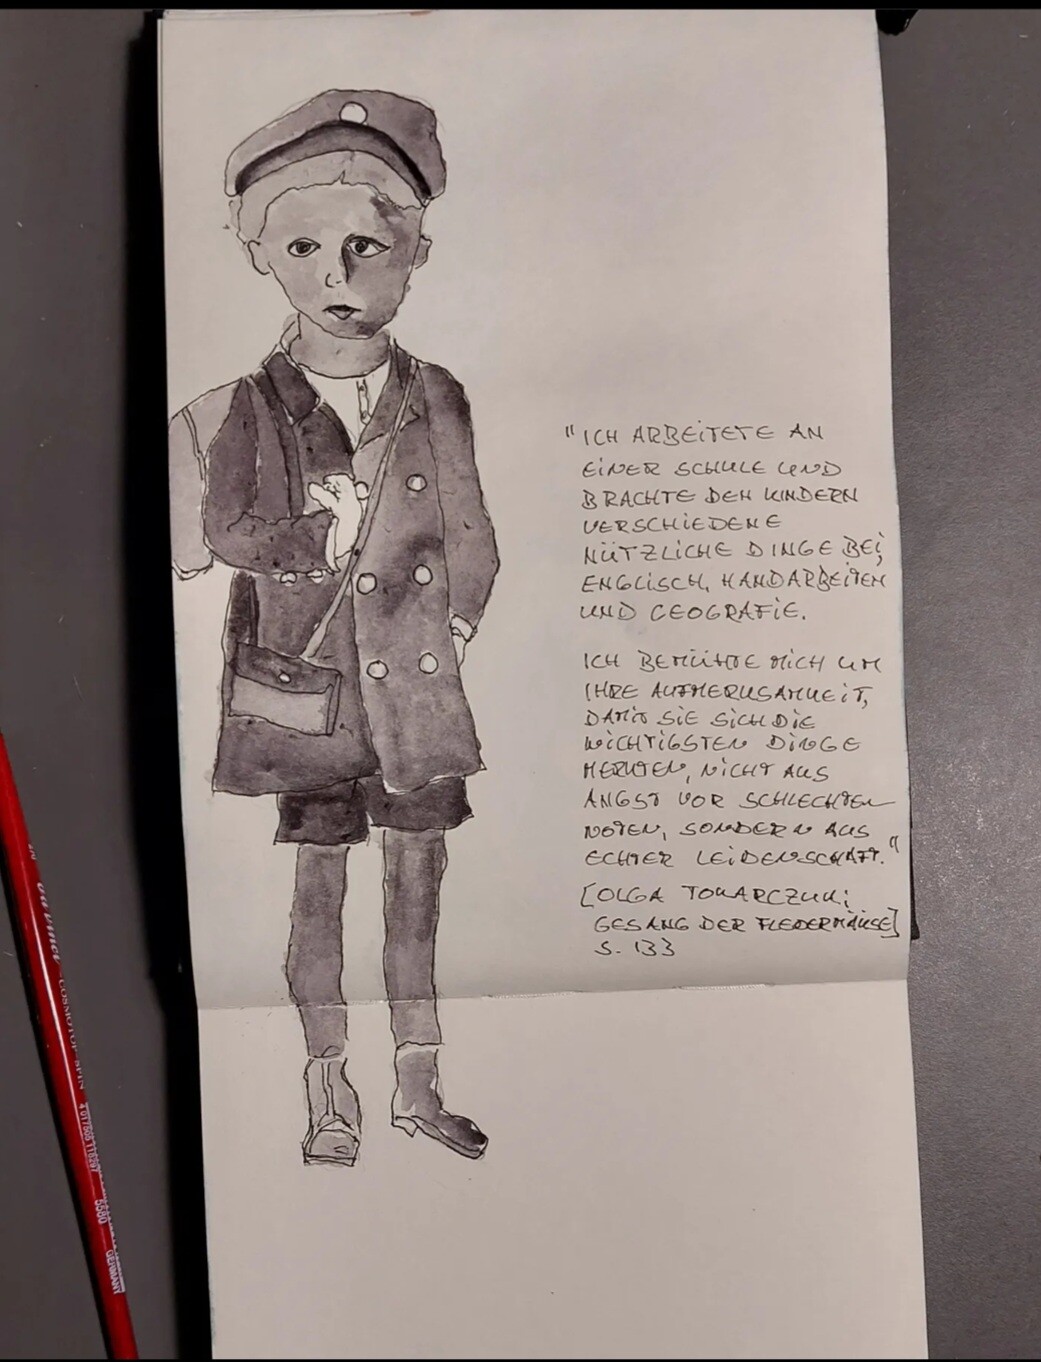 "ICH ARBEITETE AN
EINER SCHULE UND
BRACHTE DEN KINDERN
VERSCHIEDENE
NÜTZLICHE DINGE BEI,
ENGLISCH, HANDARBEITEN
UND GEOGRAFIE.
ICH BEMÜHTE MICH UM
IHRE AUFMERKSAMKEIT,
DAMIT SIE SICH DIE
WICHTIGSTEN DINGE
MERKTEN, NICHT AUS
ANGST VOR SCHLECHTEN
NOTEN, SONDERN AUS
ECHTER LEIDENSCHAFT."
[OLGA TOKARCZUK:
GESANG DER FLEDERMÄUSE]
S. 133
da Vinci COSMOTOP SPIN 4 017505 115297 5580 GERMANY